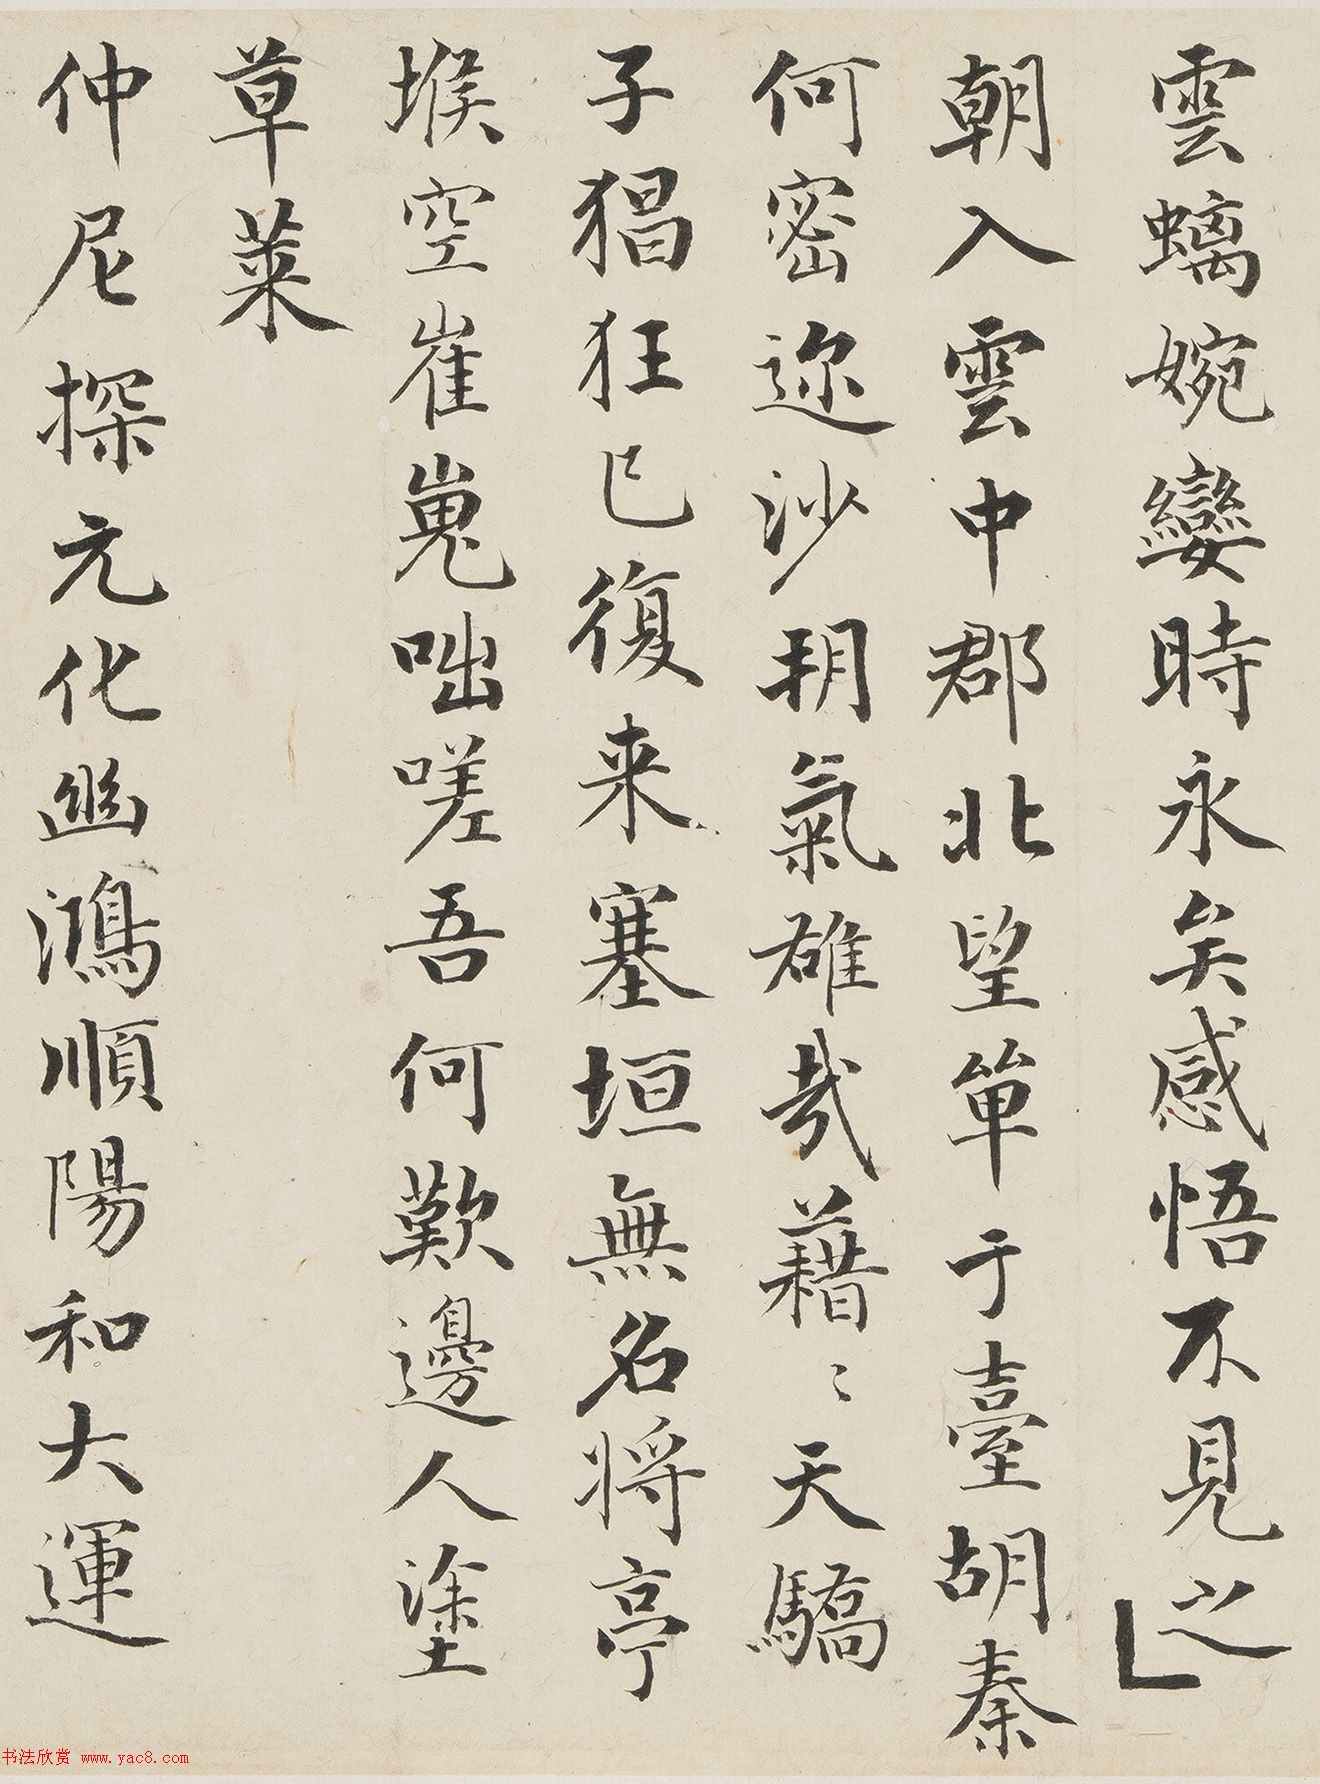 雲螭婉孌時永矣感悟不見之
朝入雲中郡北望單于臺胡秦
何密邇沙朔氣雄哉藉〻天驕
子猖狂已復来塞垣無名将亭
堠空崔嵬咄嗟吾何歎邊人塗
草萊
仲尼探元化幽鴻順陽和大運
书法欣赏 www.yac8.com